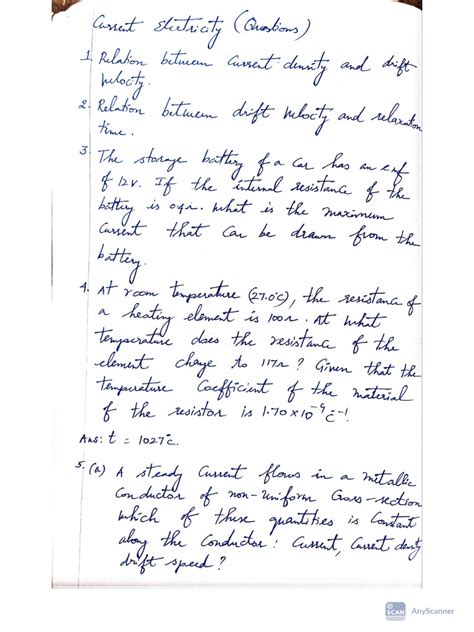 Current Electricity (Questions)
1. Relation between Current density and drift
velocity.
2. Relation between drift velocity and relaxation
time.
3. The storage battery of a car has an emf
of 12V. If the internal resistance of the
battery is 0.4Ω. What is the maximum
Current that Can be drawn from the
battery.
4. At room temperature (27.0°C), the resistance of
a heating element is 100Ω. At what
temperature does the resistance of the
element change to 117Ω? Given that the
temperature Coefficient of the material
of the resistor is 1.70×10⁻⁴ °C⁻¹.
Ans: t = 1027°C.
5. (a) A steady Current flows in a metallic
Conductor of non-uniform Cross-section
which of these quantities is Constant
along the Conductor: Current, Current density
drift speed?
SCAN AnyScanner